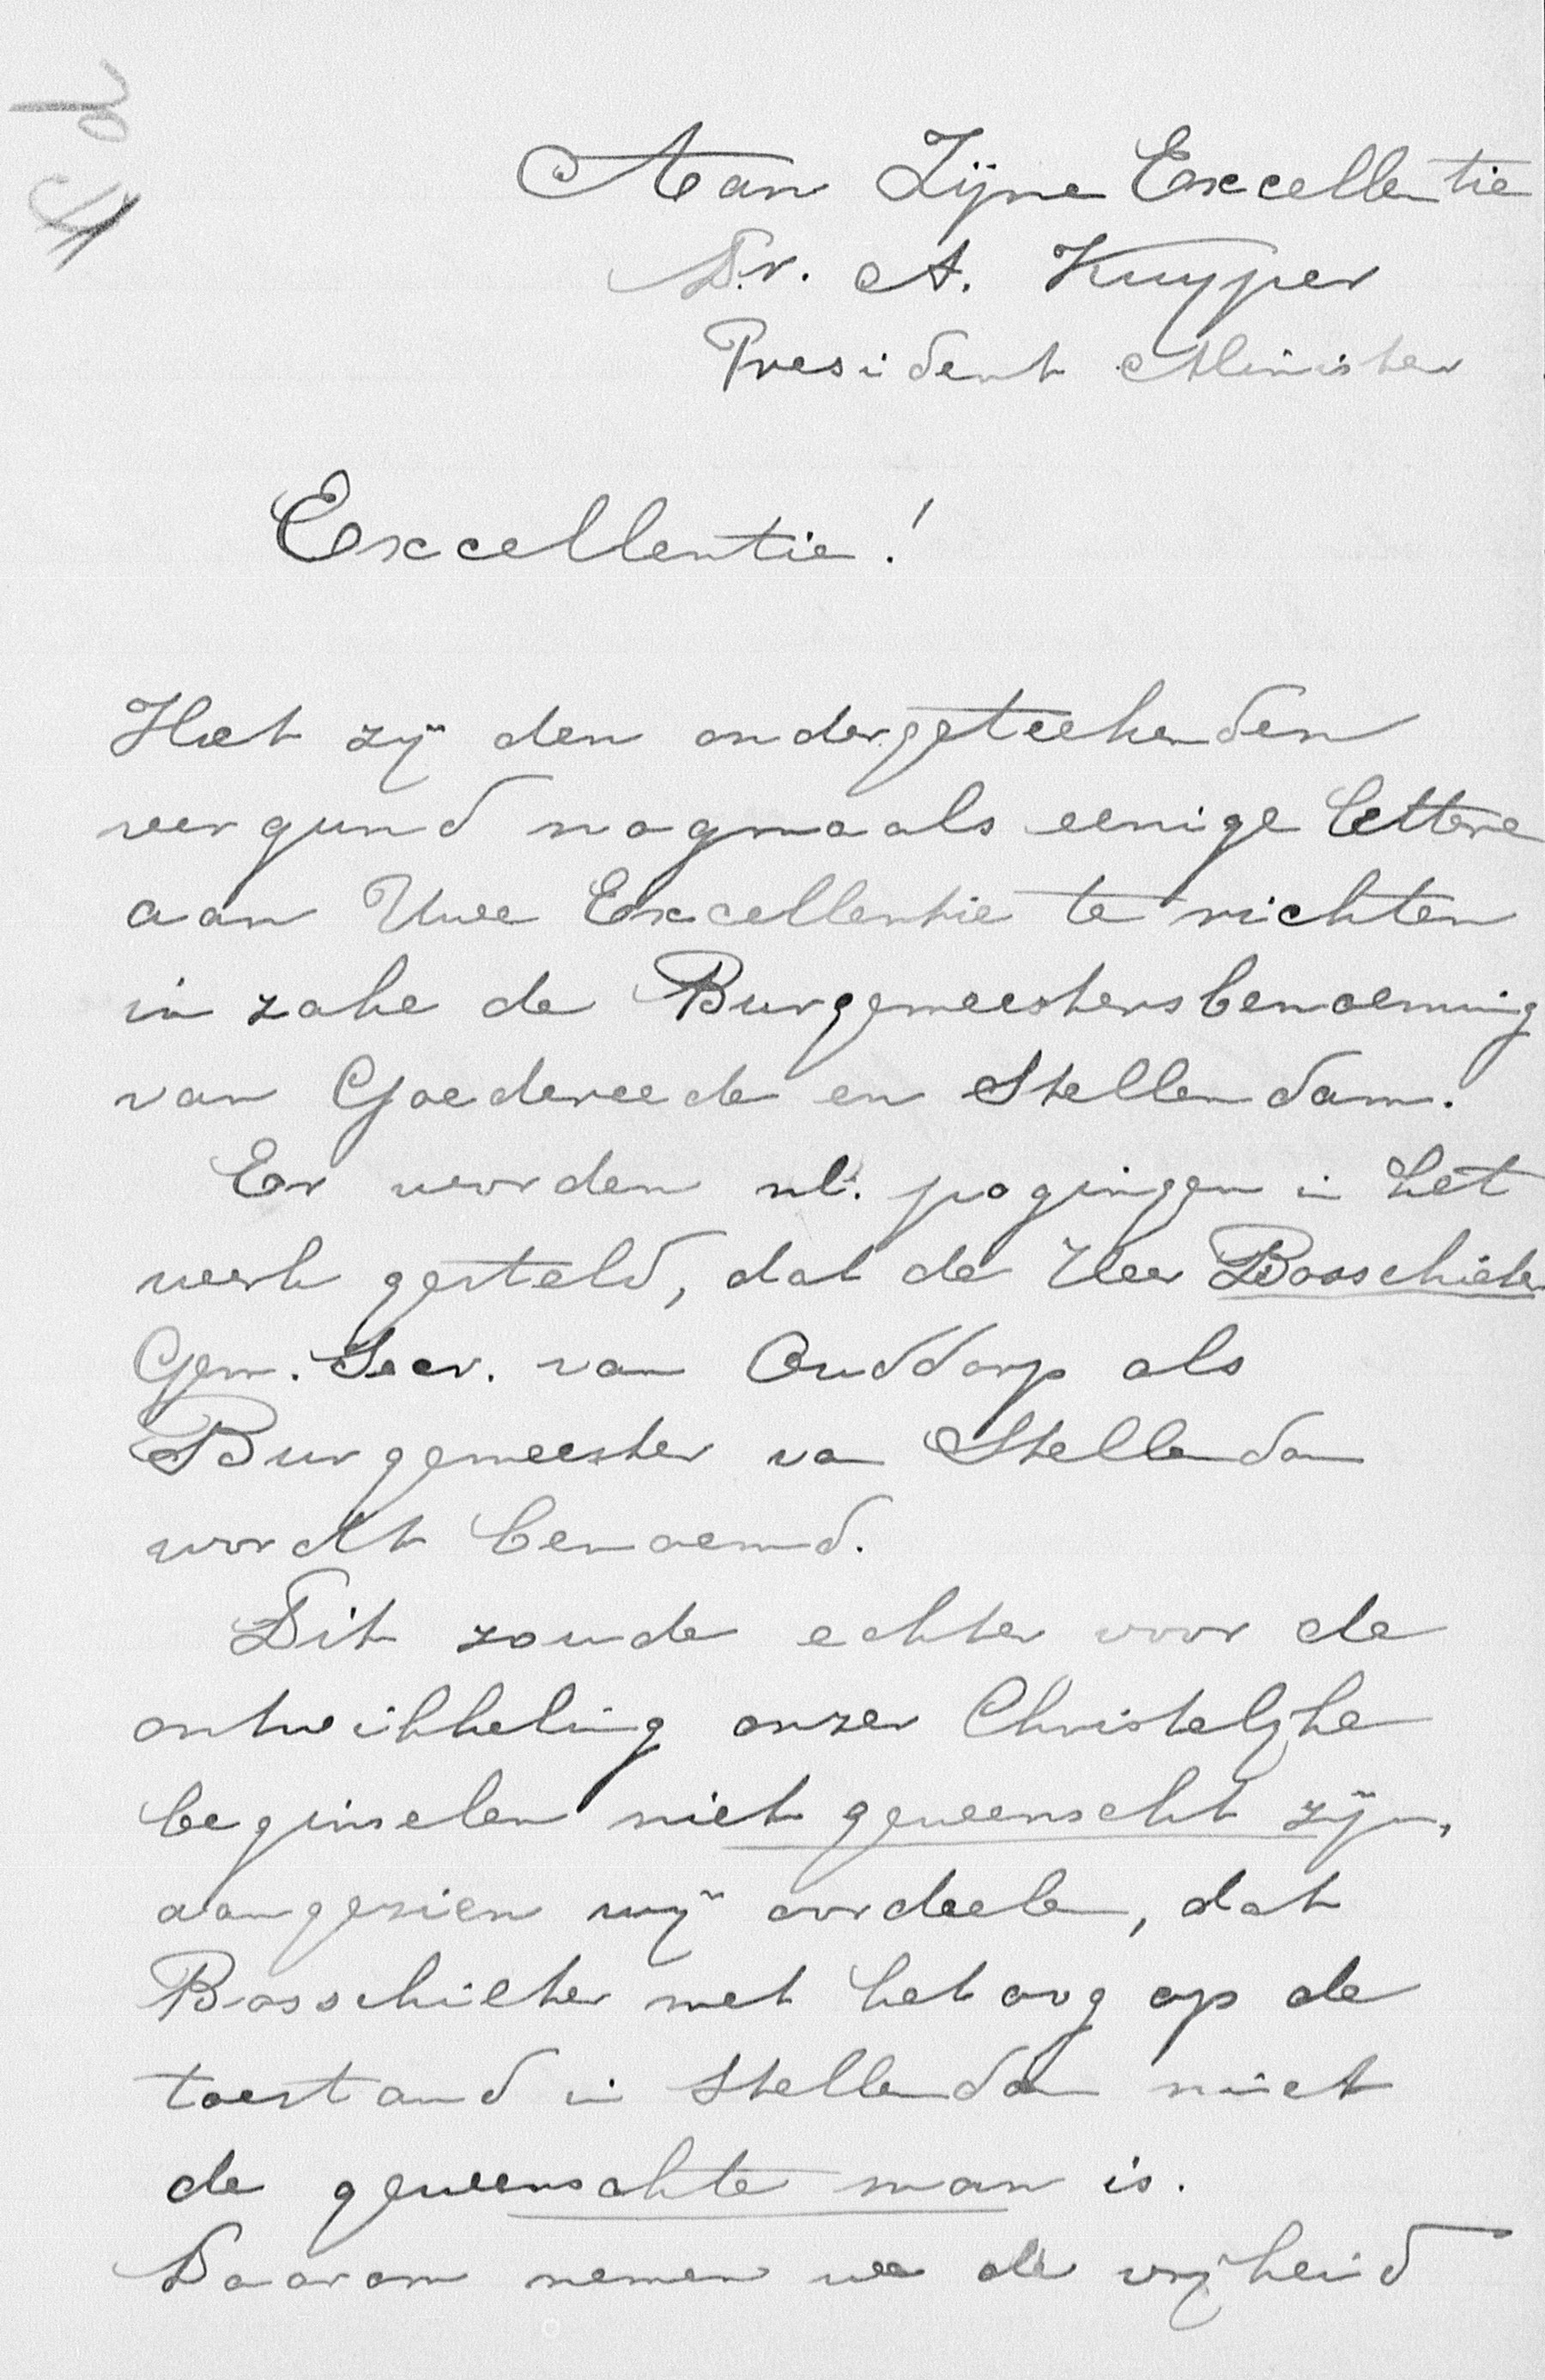 Aan Zijne Excellentie
Dr. A. Kuyper
President Minister
Excellentie!
Het zij den ondergeteekenden
vergund nogmaals eenige lettere
aan Uwe Excellentie te richten
in zake de Burgemeestersbenoeming
van Goedereede en Stellendam.
Er worden nl. pogingen in het
werk gesteld, dat de Heer Bosschieter
Gem. Secr. van Ouddorp als
Burgemeester van Stellendam
wordt benoemd.
Dit zoude echter voor de
ontwikkeling onzer Christelijke
beginselen niet gewenscht zijn,
aangezien wij oordeelen, dat
Bosschieter met het oog op de
toestand in Stellendam niet
de gewenschte man is.
Daarom nemen we de vrijheid